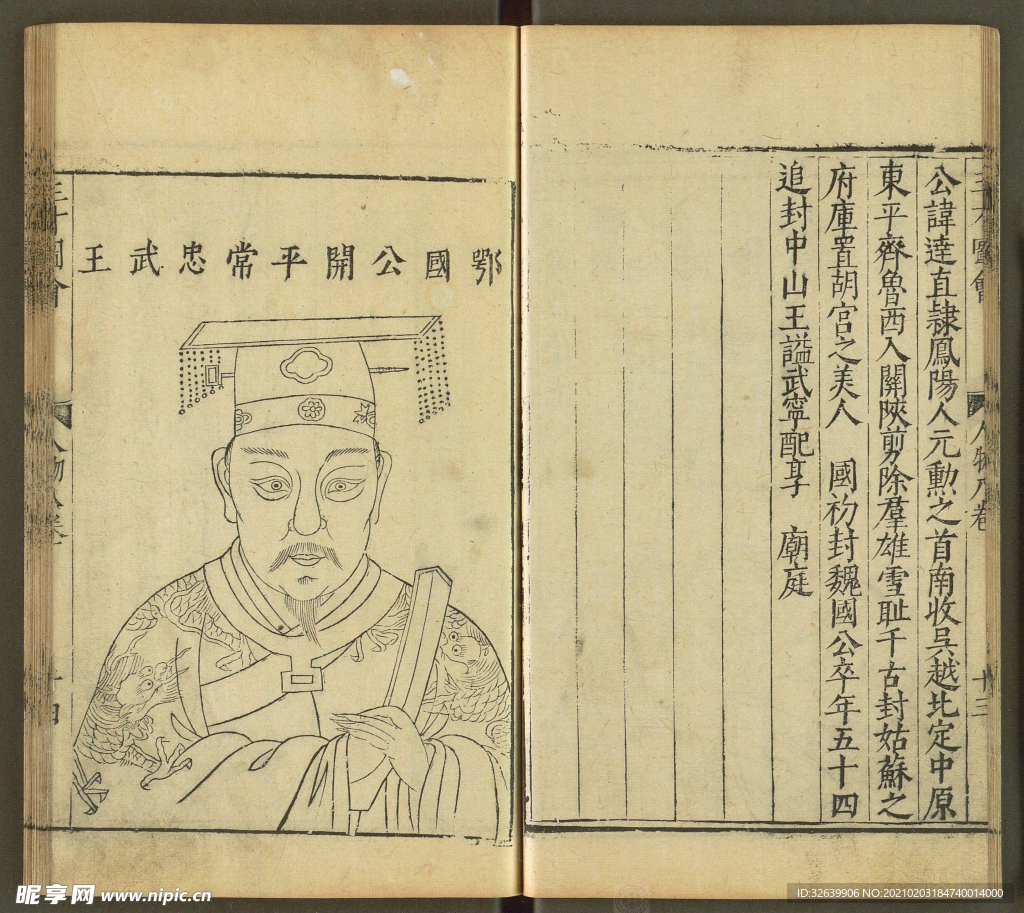 公諱達直隷鳳陽人元勲之首南收吳越北定中原
東平齊魯西入關陝剪除羣雄雪耻千古封姑蘇之
府庫置胡宫之美人 國初封魏國公卒年五十四
追封中山王謚武寧配享 廟庭
十三
鄂國公開平常忠武王
昵享网 www.nipic.cn
ID:32639906 NO:20210203184740014000